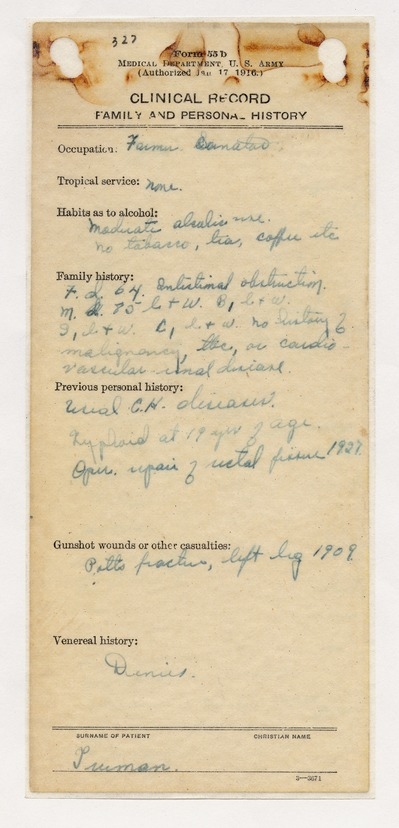 327
Form 55 b
MEDICAL DEPARTMENT, U. S. ARMY
(Authorized Jan 17 1916.)
CLINICAL RECORD
FAMILY AND PERSONAL HISTORY
Occupation: Farmer Senator.
Tropical service: none.
Habits as to alcohol:
Moderate use.
no tobacco, tea, coffee etc
Family history:
F. d. 64. Intestinal obstruction.
M. 75 l & W. B, l & W.
S, l & W. C, l & W. No history of
malignancy, tbc, or cardio-
vascular-renal disease.
Previous personal history:
Usual C.H. diseases.
Typhoid at 19 yrs of age.
Oper. repair of rectal fissure 1927.
Gunshot wounds or other casualties:
Potts fracture, left leg 1909.
Venereal history:
Denies.
SURNAME OF PATIENT CHRISTIAN NAME
Truman.
3—3671